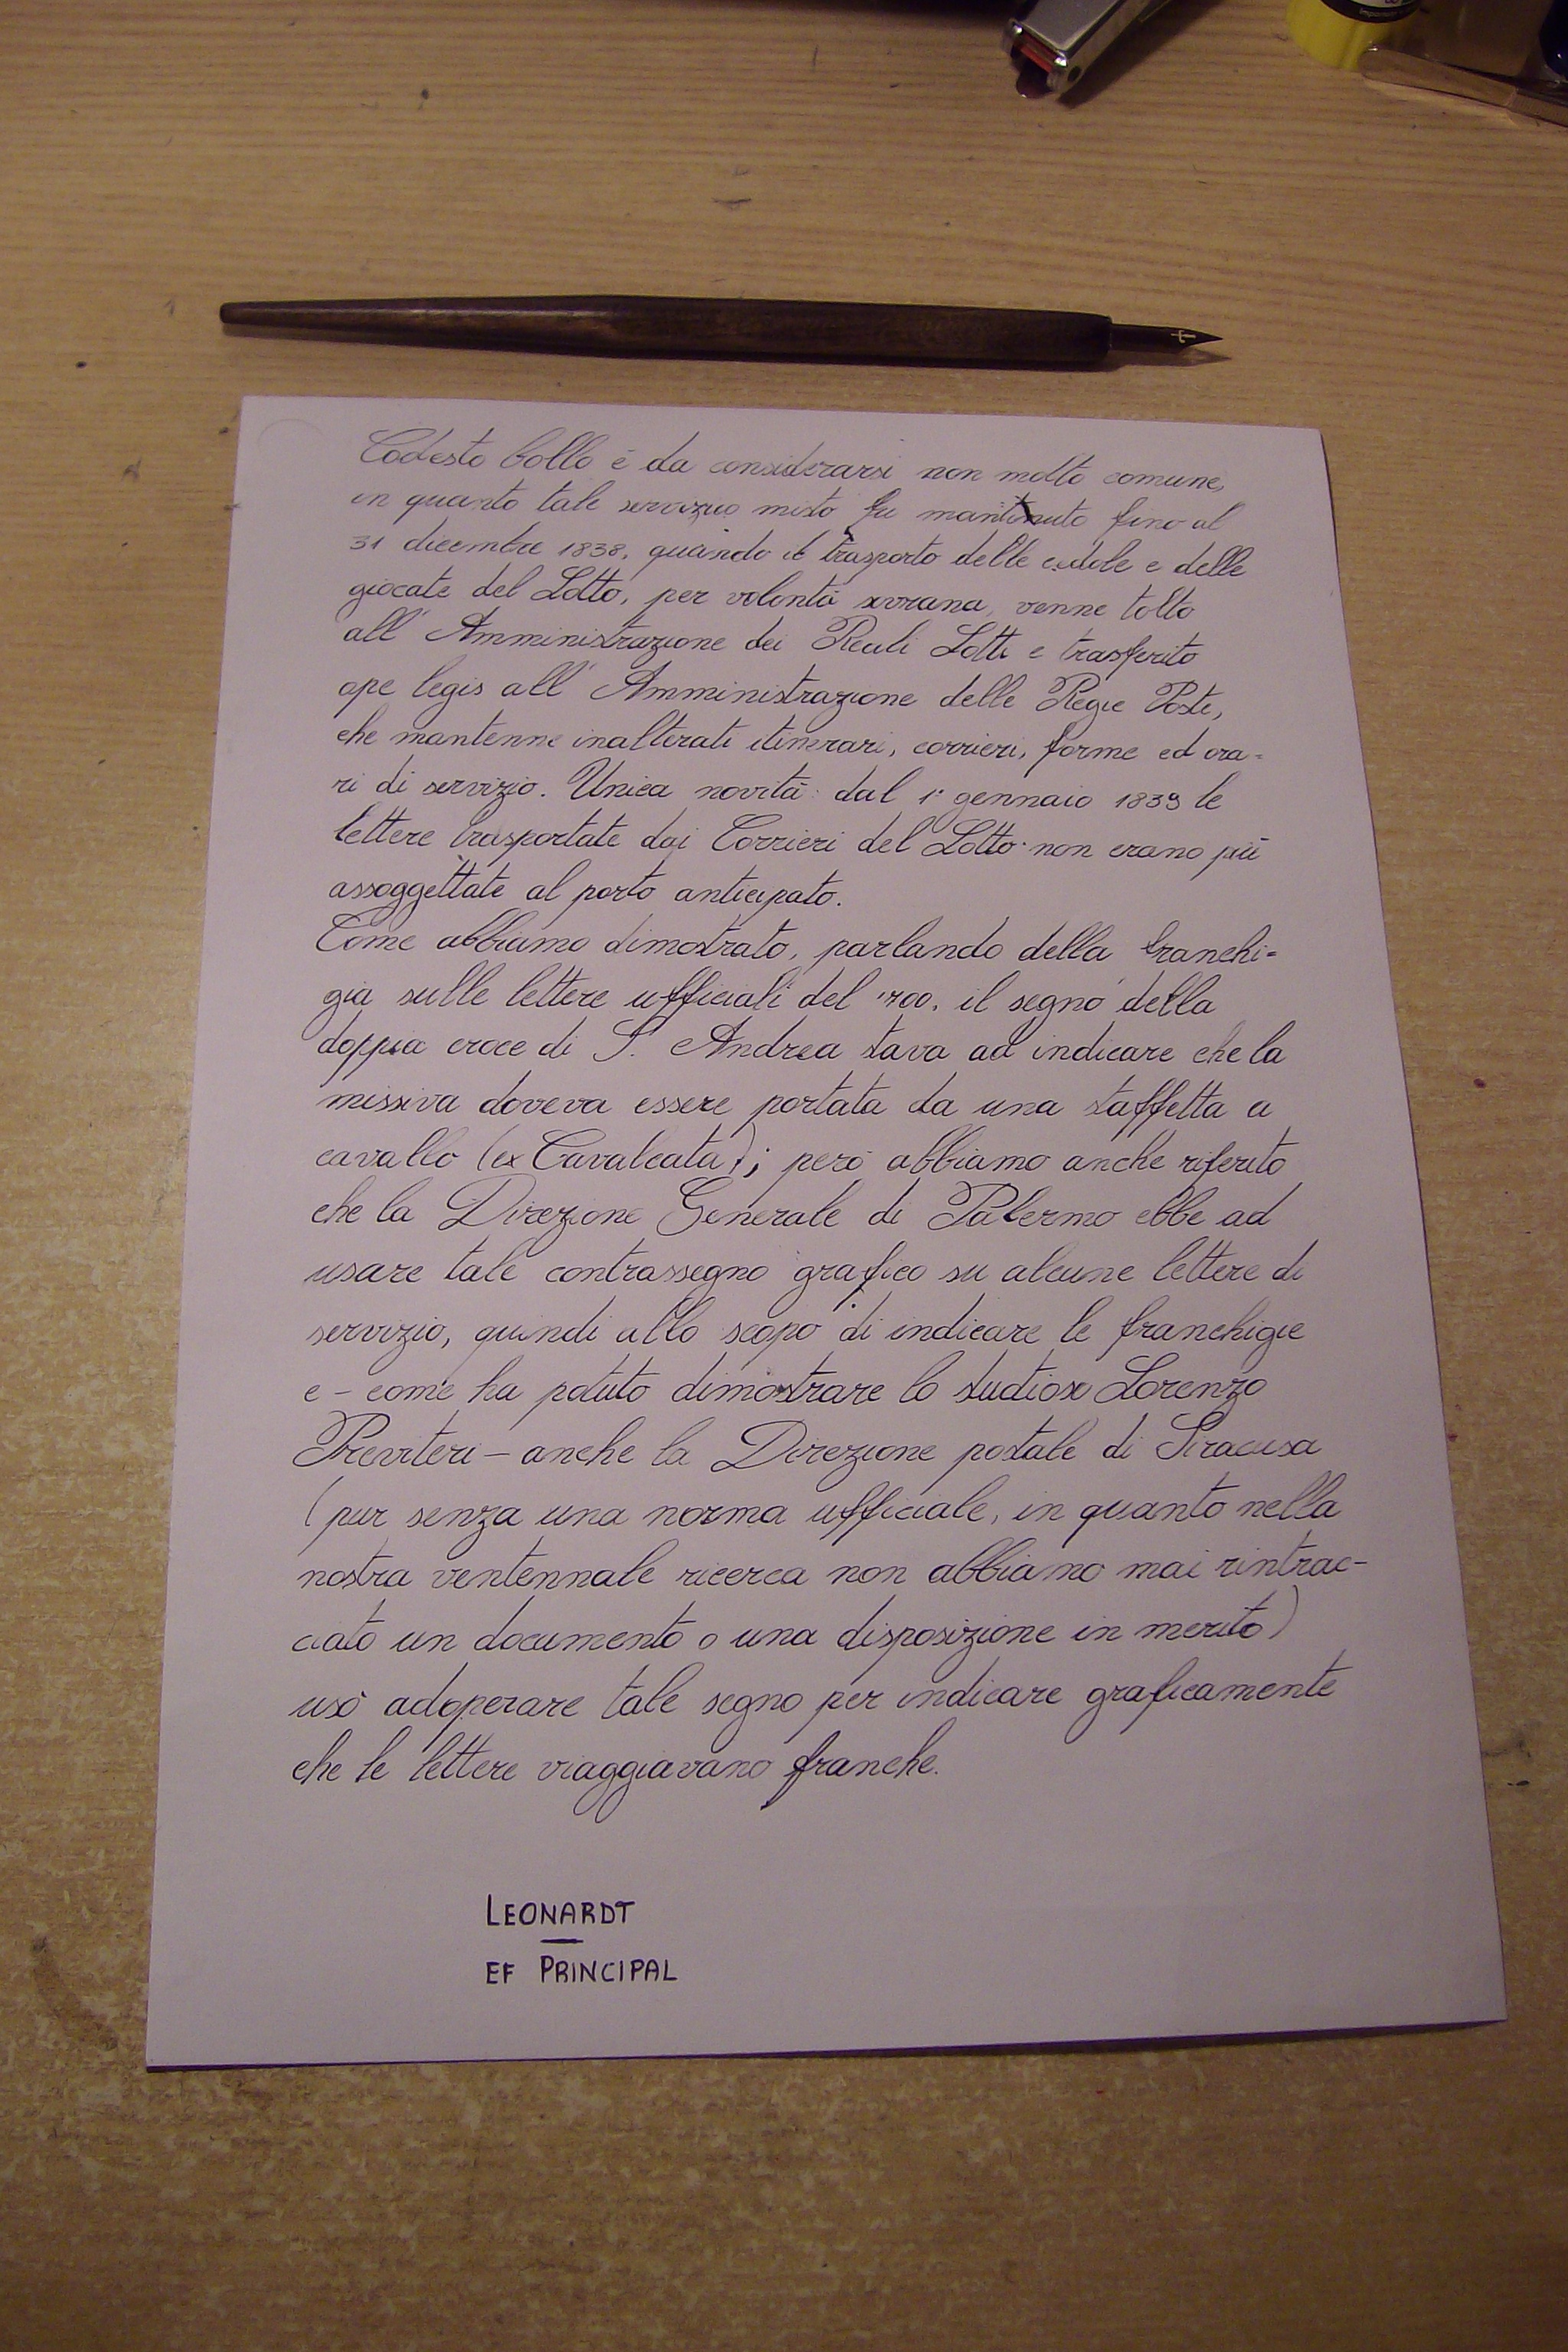 Codesto bollo è da considerarsi non molto comune,
in quanto tale servizio misto fu mantenuto fino al
31 dicembre 1838, quando il trasporto delle cedole e delle
giocate del Lotto, per volontà sovrana, venne tolto
all'Amministrazione dei Reali Lotti e trasferito
ope legis all'Amministrazione delle Regie Poste,
che mantenne inalterati itinerari, corrieri, forme ed ora=
ri di servizio. Unica novità: dal 1° gennaio 1839 le
lettere trasportate dai Corrieri del Lotto non erano più
assoggettate al porto anticipato.
Come abbiamo dimostrato, parlando della franchi=
gia sulle lettere ufficiali del '700, il segno della
doppia croce di S. Andrea stava ad indicare che la
missiva doveva essere portata da una staffetta a
cavallo (ex Cavalcata); però abbiamo anche riferito
che la Direzione Generale di Palermo ebbe ad
usare tale contrassegno grafico su alcune lettere di
servizio, quindi allo scopo di indicare le franchigie
e - come ha potuto dimostrare lo studioso Lorenzo
Previteri - anche la Direzione postale di Siracusa
(pur senza una norma ufficiale, in quanto nella
nostra ventennale ricerca non abbiamo mai rintrac-
ciato un documento o una disposizione in merito)
usò adoperare tale segno per indicare graficamente
che le lettere viaggiavano franche.
LEONARDT
EF PRINCIPAL